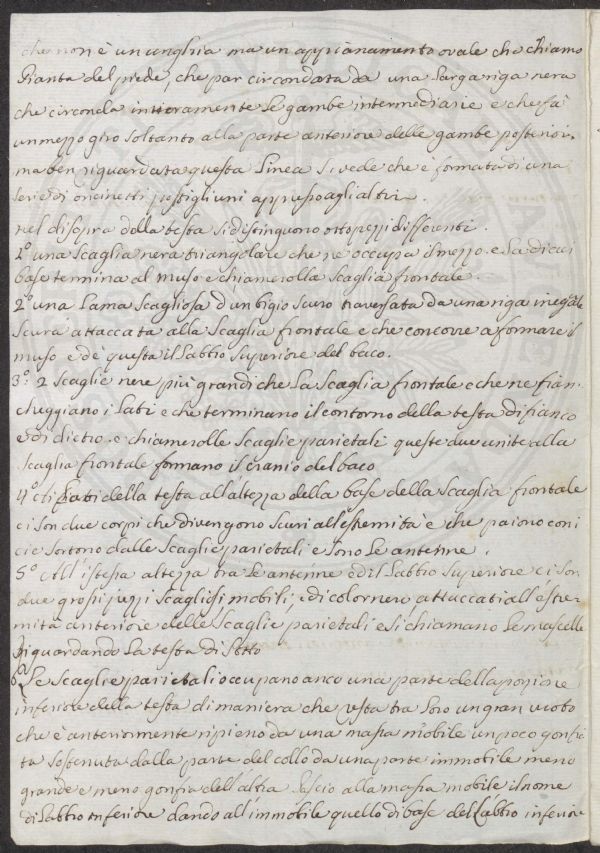 che non è un unghia ma un appianamento ovale che chiamo
Pianta del piede, che par circondata da una larga riga nera
che circonda intieramente le gambe intermediarie e che fà
un mezzo giro soltanto alla parte anteriore delle gambe posteriori
ma ben riguardata questa linea si vede che è formata di una
serie di oncinetti posti gli uni appresso agli altri.
nel disopra della testa si distinguono otto pezzi differenti.
1.º una scaglia nera triangolare che ne occupa il mezzo e la di cui
base termina al muso e chiamerolla scaglia frontale.
2.º una lama scagliosa d'un bigio scuro traversata da una riga inegale
scura attaccata alla scaglia frontale e che concorre a formare il
muso ed è questa il labbro superiore del baco.
3.º 2 scaglie nere più grandi che la scaglia frontale e che ne fian-
cheggiano i lati e che terminano il contorno della testa di fianco
e di dietro e chiamerolle scaglie parietali queste due unite alla
scaglia frontale formano il cranio del baco
4.º Ai lati della testa all'altezza della base della scaglia frontale
ci son due corpi che divengono scuri all'estremità e che paiono coni
cie sortono dalle scaglie parietali e sono le antenne.
5.º All'istessa altezza tra le antenne ed il labbro superiore ci son
due grossi pezzi scagliosi, mobili, e di color nero, attaccati all'estre-
mità anteriore delle scaglie parietali e si chiamano le mascelle
Riguardando la testa di sotto
6.º Le scaglie parietali occupano anco una parte della porzione
inferiore della testa di maniera che resta tra loro un gran vuoto
che è anteriormente ripieno da una massa mobile un poco gonfia
ta sostenuta dalla parte del collo da una parte immobile meno
grande e meno gonfia dell'altra lascio alla massa mobile il nome
di labbro inferiore dando all'immobile quello di base del labbro inferiore